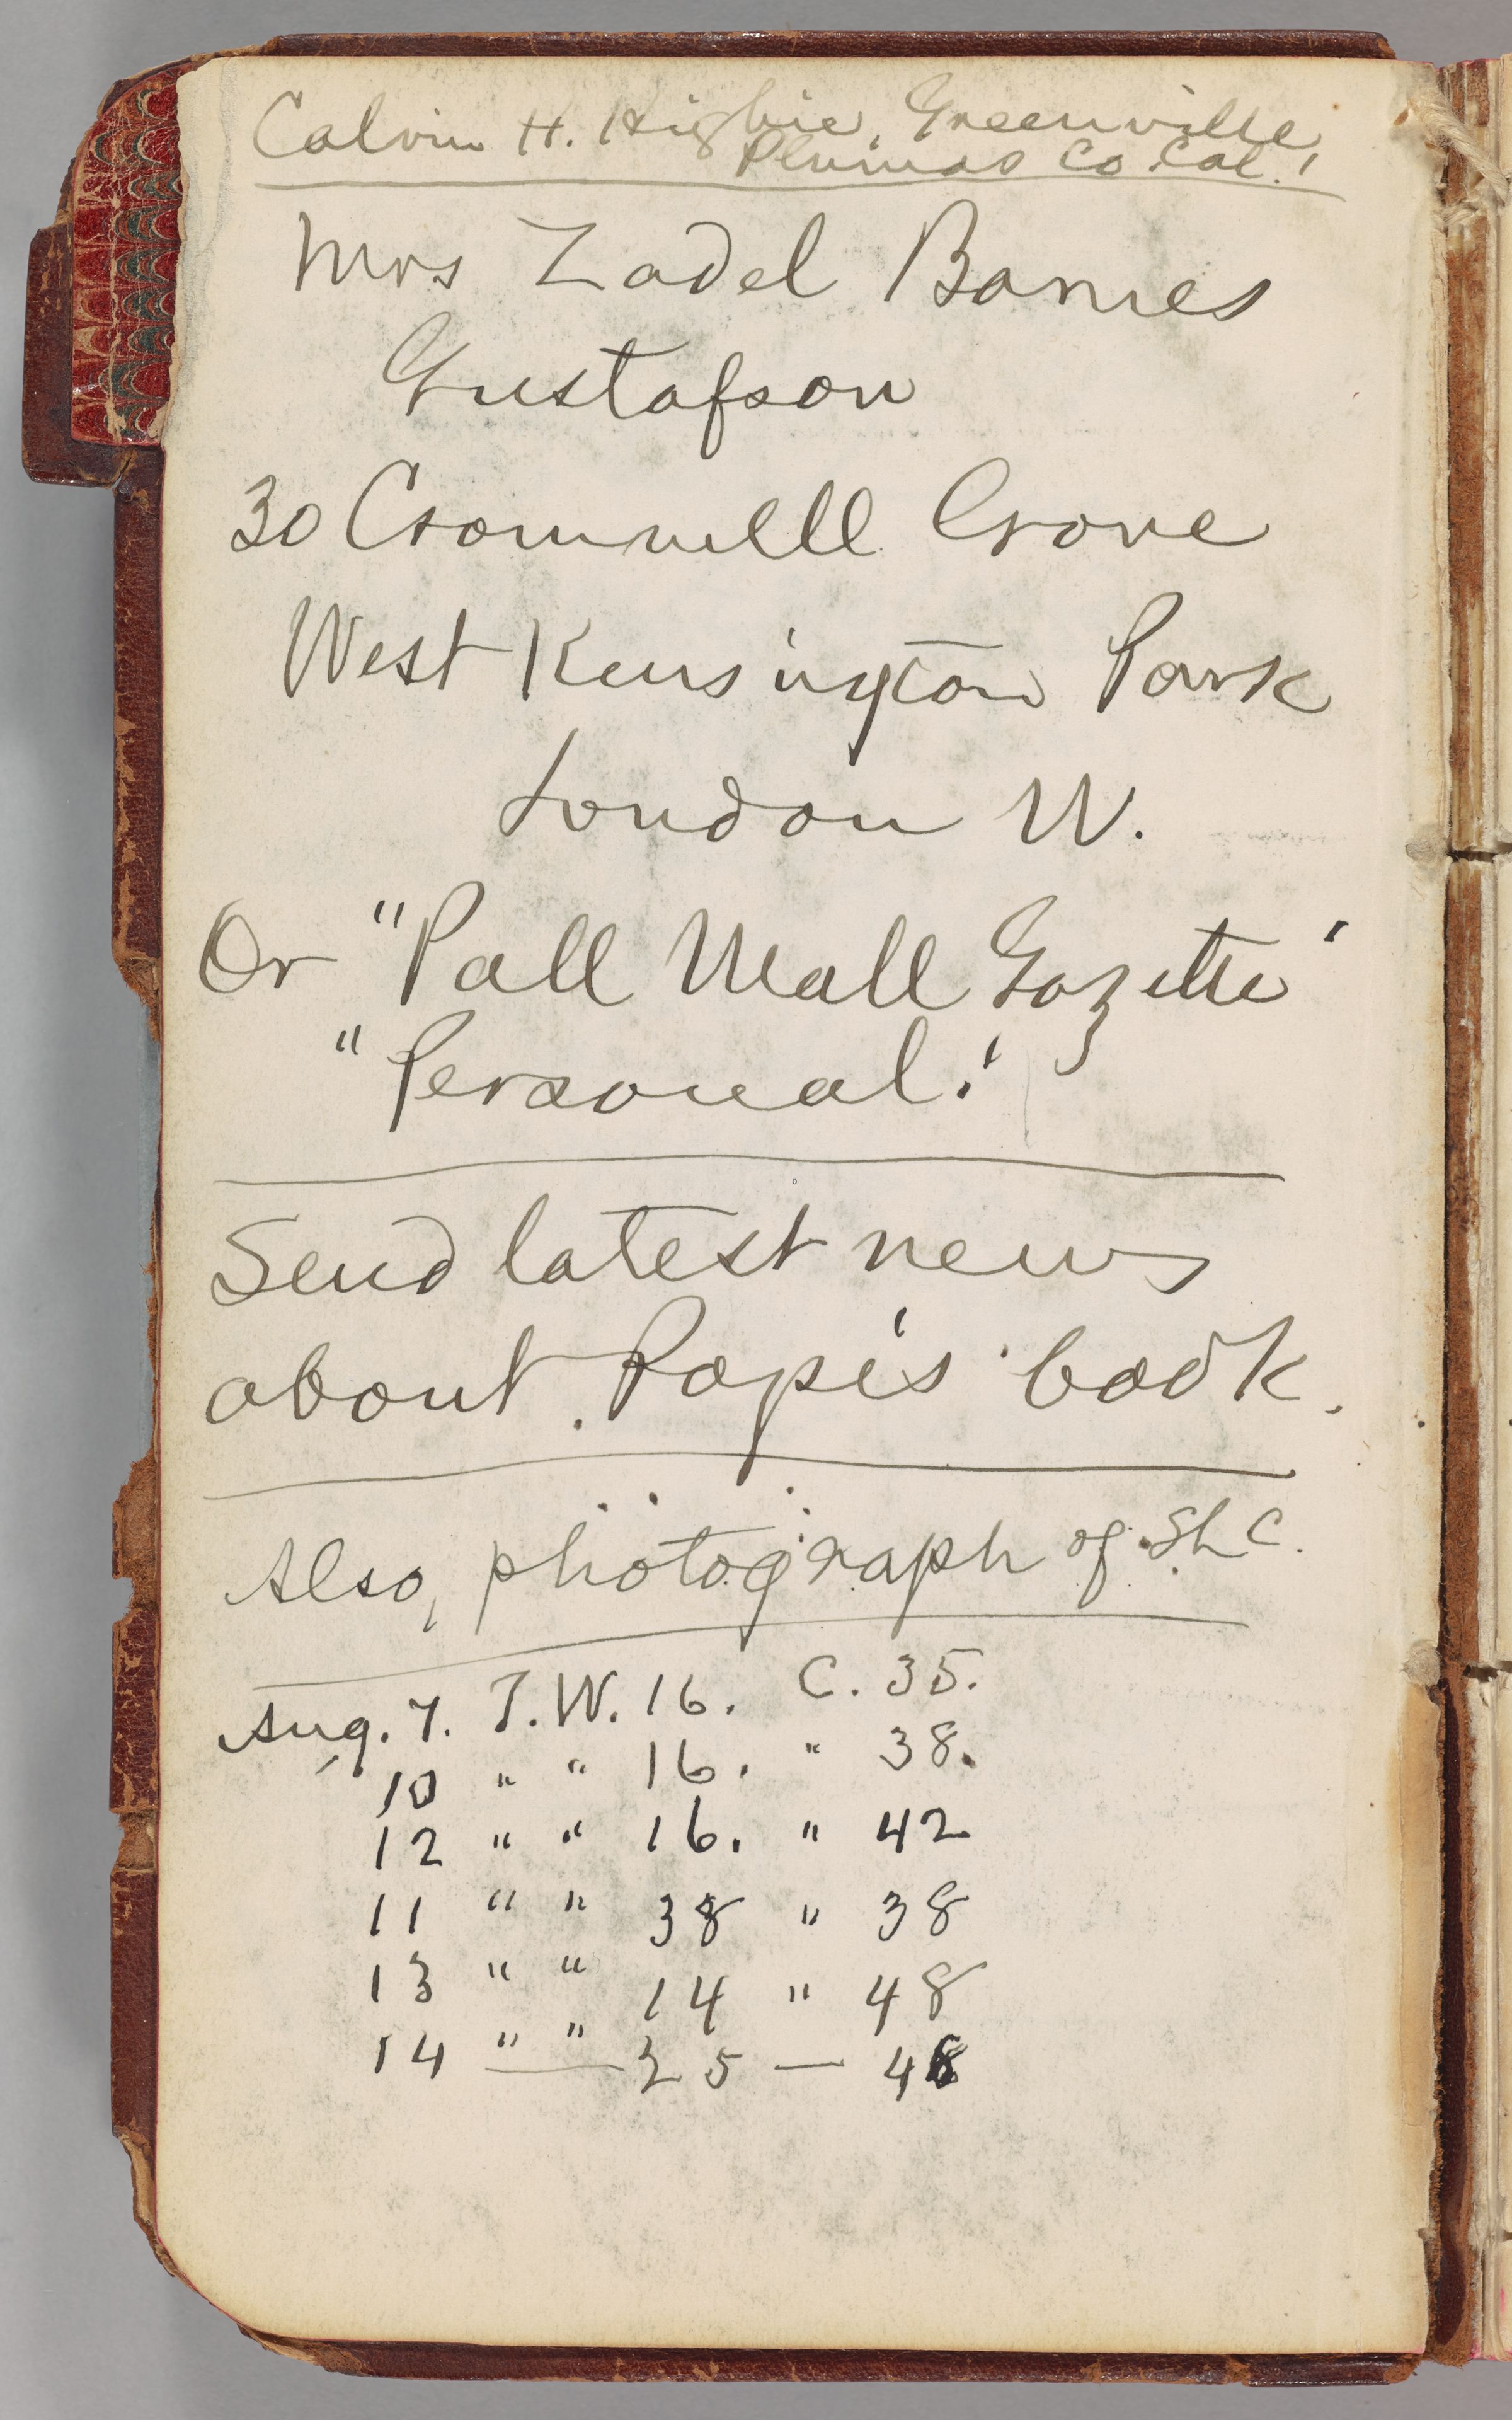 Calvin H. Higbie, Greenville,
Plumas Co. Cal.
Mrs Zadel Barnes
Gustafson
30 Cromwelll Grove
West Kensington Park
London W.
Or "Pall Mall Gazette"
"Personal."
Send latest news
about Pope's book.
Also, photograph of SLC.
Aug. 7. T. W. 16. C. 35.
10 " " 16. " 38.
12 " " 16. " 42
11 " " 38 " 38
13 " " 14 " 48
14 " " 25 — 48